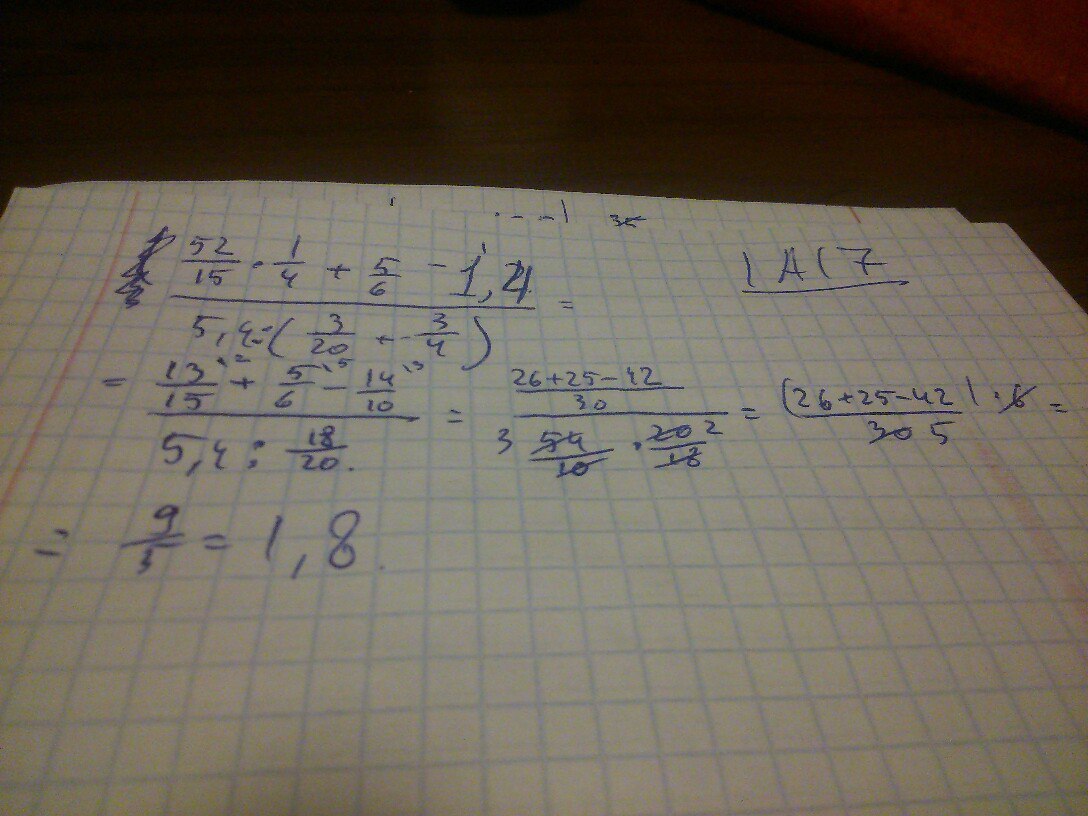 52/15 · 1/4 + 5/6 - 1,4
5,4 : ( 3/20 + 3/4 ) =
1A(7
= 13/15 + 5/6 - 14/10
5,4 : 18/20. = 26+25-42/30
3 54/10 · 20 2/18 = (26+25-42) · 6/30 5 =
= 9/5 = 1,8.